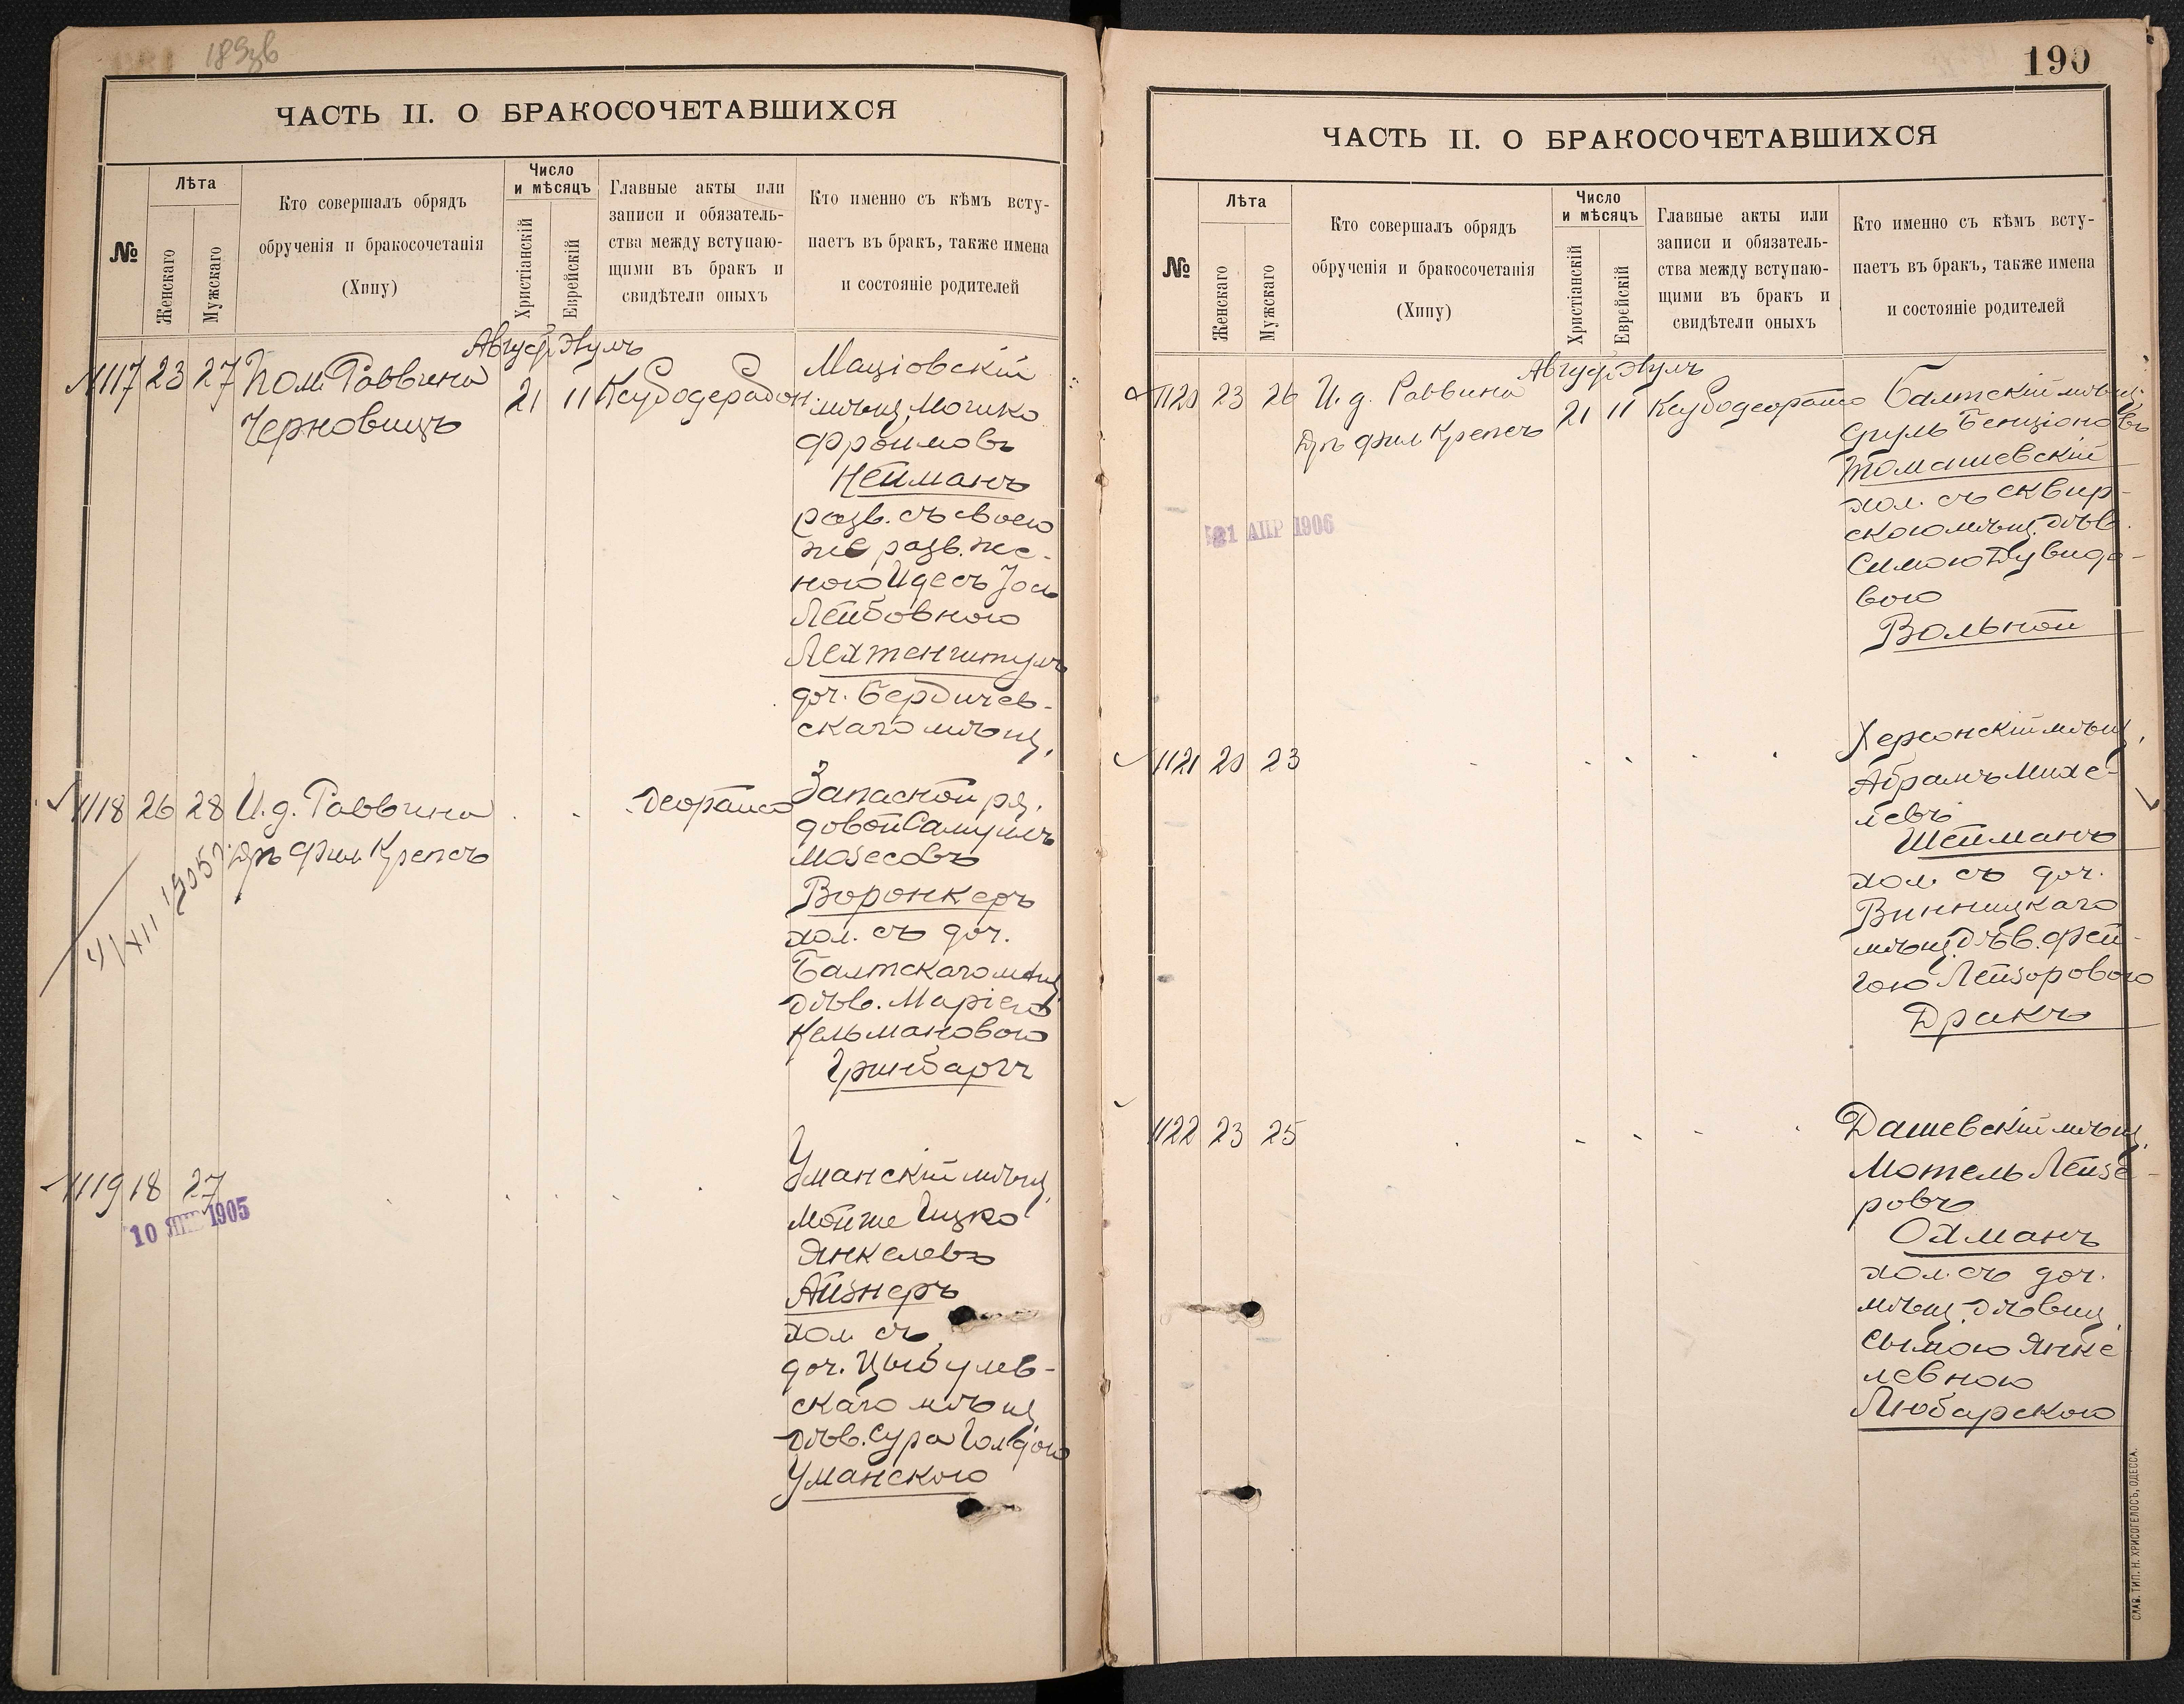 189об
ЧАСТЬ II. О БРАКОСОЧЕТАВШИХСЯ
№
Лѣта
Женскаго
Мужскаго
Кто совершалъ обрядъ
обрученія и бракосочетанія
(Хипу)
Число
и мѣсяцъ
Христіанскій
Еврейскій
Главные акты или
записи и обязатель-
ства между вступаю-
щими въ бракъ и
свидѣтели оныхъ
Кто именно съ кѣмъ всту-
паетъ въ бракъ, также имена
и состояніе родителей
Август Элулъ
1117 23 27 Пом. Раввина
Черновицъ
21 11
Маціовскій
мѣщ. Мошко
Фроимовъ
Нейманъ
разв. съ своею
же разв. же-
ною Идесъ Іось
Лейбовною
Лехтенштулъ
доч. Бердичев-
скаго мѣщ.
1118 26 28 И.д. Раввина
Дръ Фил. Крепсъ
4/XII 1905 г.
Запасной ря-
довой Самуилъ
Мозесовъ
Воронкеръ
хол. съ доч.
Балтскаго мѣщ.
дѣв. Маріею
Кельмановою
Гринбаргъ
1119 18 27
10 ЯНВ 1905
Уманскій мѣщ.
Мойше Ицко
Янкелевъ
Айзнеръ
хол. съ
доч. Цыбулев-
скаго мѣщ.
дѣв. Сура Голдою
Уманскою
190
ЧАСТЬ II. О БРАКОСОЧЕТАВШИХСЯ
№
Лѣта
Женскаго
Мужскаго
Кто совершалъ обрядъ
обрученія и бракосочетанія
(Хипу)
Число
и мѣсяцъ
Христіанскій
Еврейскій
Главные акты или
записи и обязатель-
ства между вступаю-
щими въ бракъ и
свидѣтели оныхъ
Кто именно съ кѣмъ всту-
паетъ въ бракъ, также имена
и состояніе родителей
Август Элулъ
1120 23 26 И.д. Раввина
Дръ Фил Крепсъ
21 11
21 АПР 1906
Балтскій мѣщ.
Сруль Бенціоновъ
Томашевскій
хол. съ сквир-
скою мѣщ. дѣв.
Симою Дувидо-
вою
Вольной
1121 20 23
Херсонскій мѣщ.
Абрамъ Михе-
левъ
Шейманъ
хол. съ доч.
Винницкаго
мѣщ. дѣв. Фей-
гою Лейзоровою
Дракъ
1122 23 25
Дашевскій мѣщ.
Мотель Лейзе-
ровъ
Охманъ
хол. съ доч.
мѣщ. дѣвиц.
Сымою Янке-
левною
Любарскою
СЛАВ. ТИП. Н. ХРИСОГЕЛОСЪ, ОДЕССА.